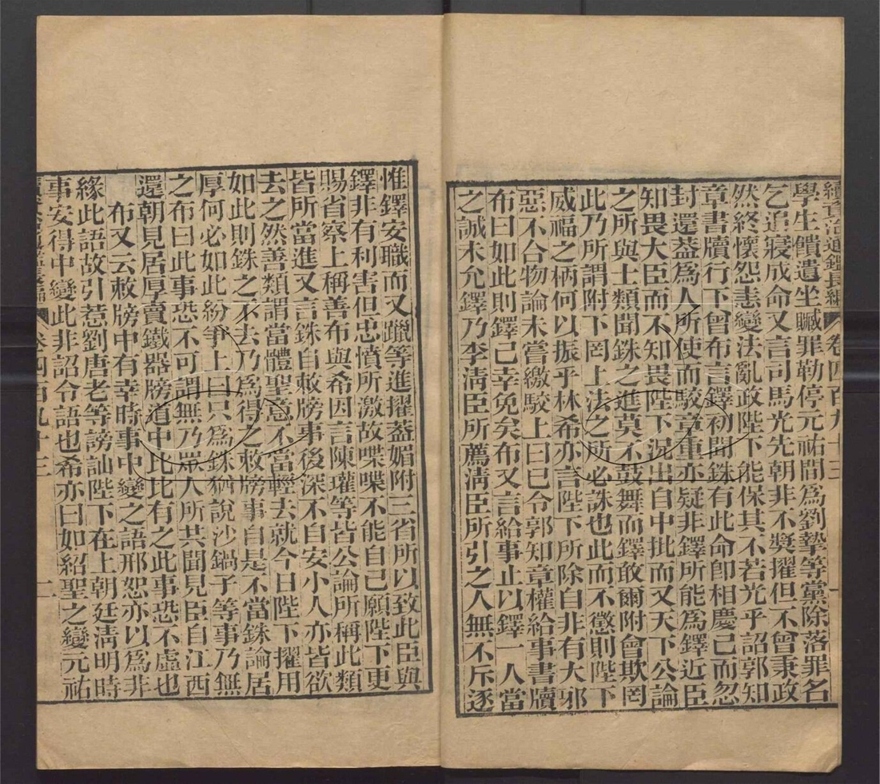 續資治通鑑長編 卷四百九十三 一
學生饋遺坐贓罪勒停元祐間為劉摯等黨除落罪名
乞追寢成命又言司馬光先朝非不獎擢但不曾秉政
然終懷怨恚變法亂政陛下能保其不若光乎詔郭知
章書牘行下曾布言鐸初聞銖有此命卽相慶已而忽
封還葢為人所使而駮章重亦疑非鐸所能為鐸近臣
知畏大臣而不知畏陛下況出自中批而又天下公論
之所與士類聞銖之進莫不鼓舞而鐸敢爾附會欺罔
此乃所謂附下罔上法之所必誅也此而不懲則陛下
威福之柄何以振乎林希亦言陛下所除自非有大邪
惡不合物論未嘗繳駮上曰已令郭知章權給事書牘
布曰如此則鐸已幸免矣布又言給事止以鐸一人當
之誠未允鐸乃李淸臣所薦淸臣所引之人無不斥逐
惟鐸安職而又躐等進擢葢媚附三省所以致此臣與
鐸非有利害但忠憤所激故喋喋不能自已願陛下更
賜省察上稱善布與希因言陳瓘等皆公論所稱此類
皆所當進又言銖自敕牓事後深不自安小人亦皆欲
去之然善類謂當體聖意不當輕去就今日陛下擢用
如此則銖之不去乃為得之敕牓事自是不當銖論居
厚何必如此紛爭上曰只為銖猶說沙鍋子等事乃無
之布曰此事恐不可謂無乃眾人所共聞見臣自江西
還朝見居厚賣鐵器牓道中比比有之此事恐不虛也
布又云敕牓中有幸時事中變之語邢恕亦以為非
緣此語故引惹劉唐老等謗訕陛下在上朝廷淸明時
事安得中變此非詔令語也希亦曰如紹聖之變元祐
卷四百九十三 二